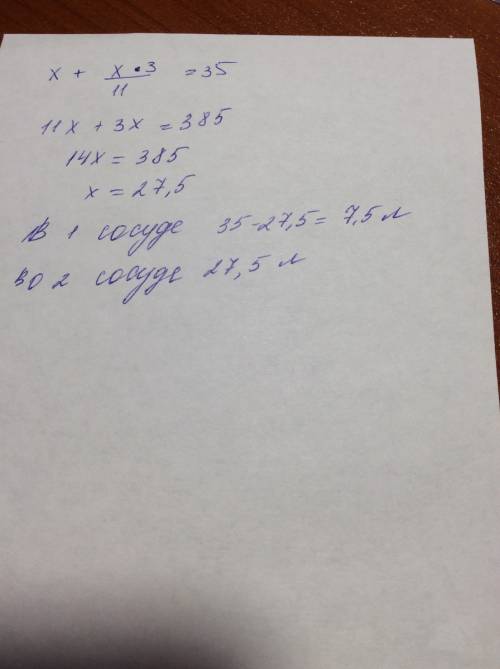 x + x • 3 / 11 = 35
11x + 3x = 385
14x = 385
x = 27,5
В 1 сосуде 35-27,5 = 7,5 л
Во 2 сосуде 27,5 л